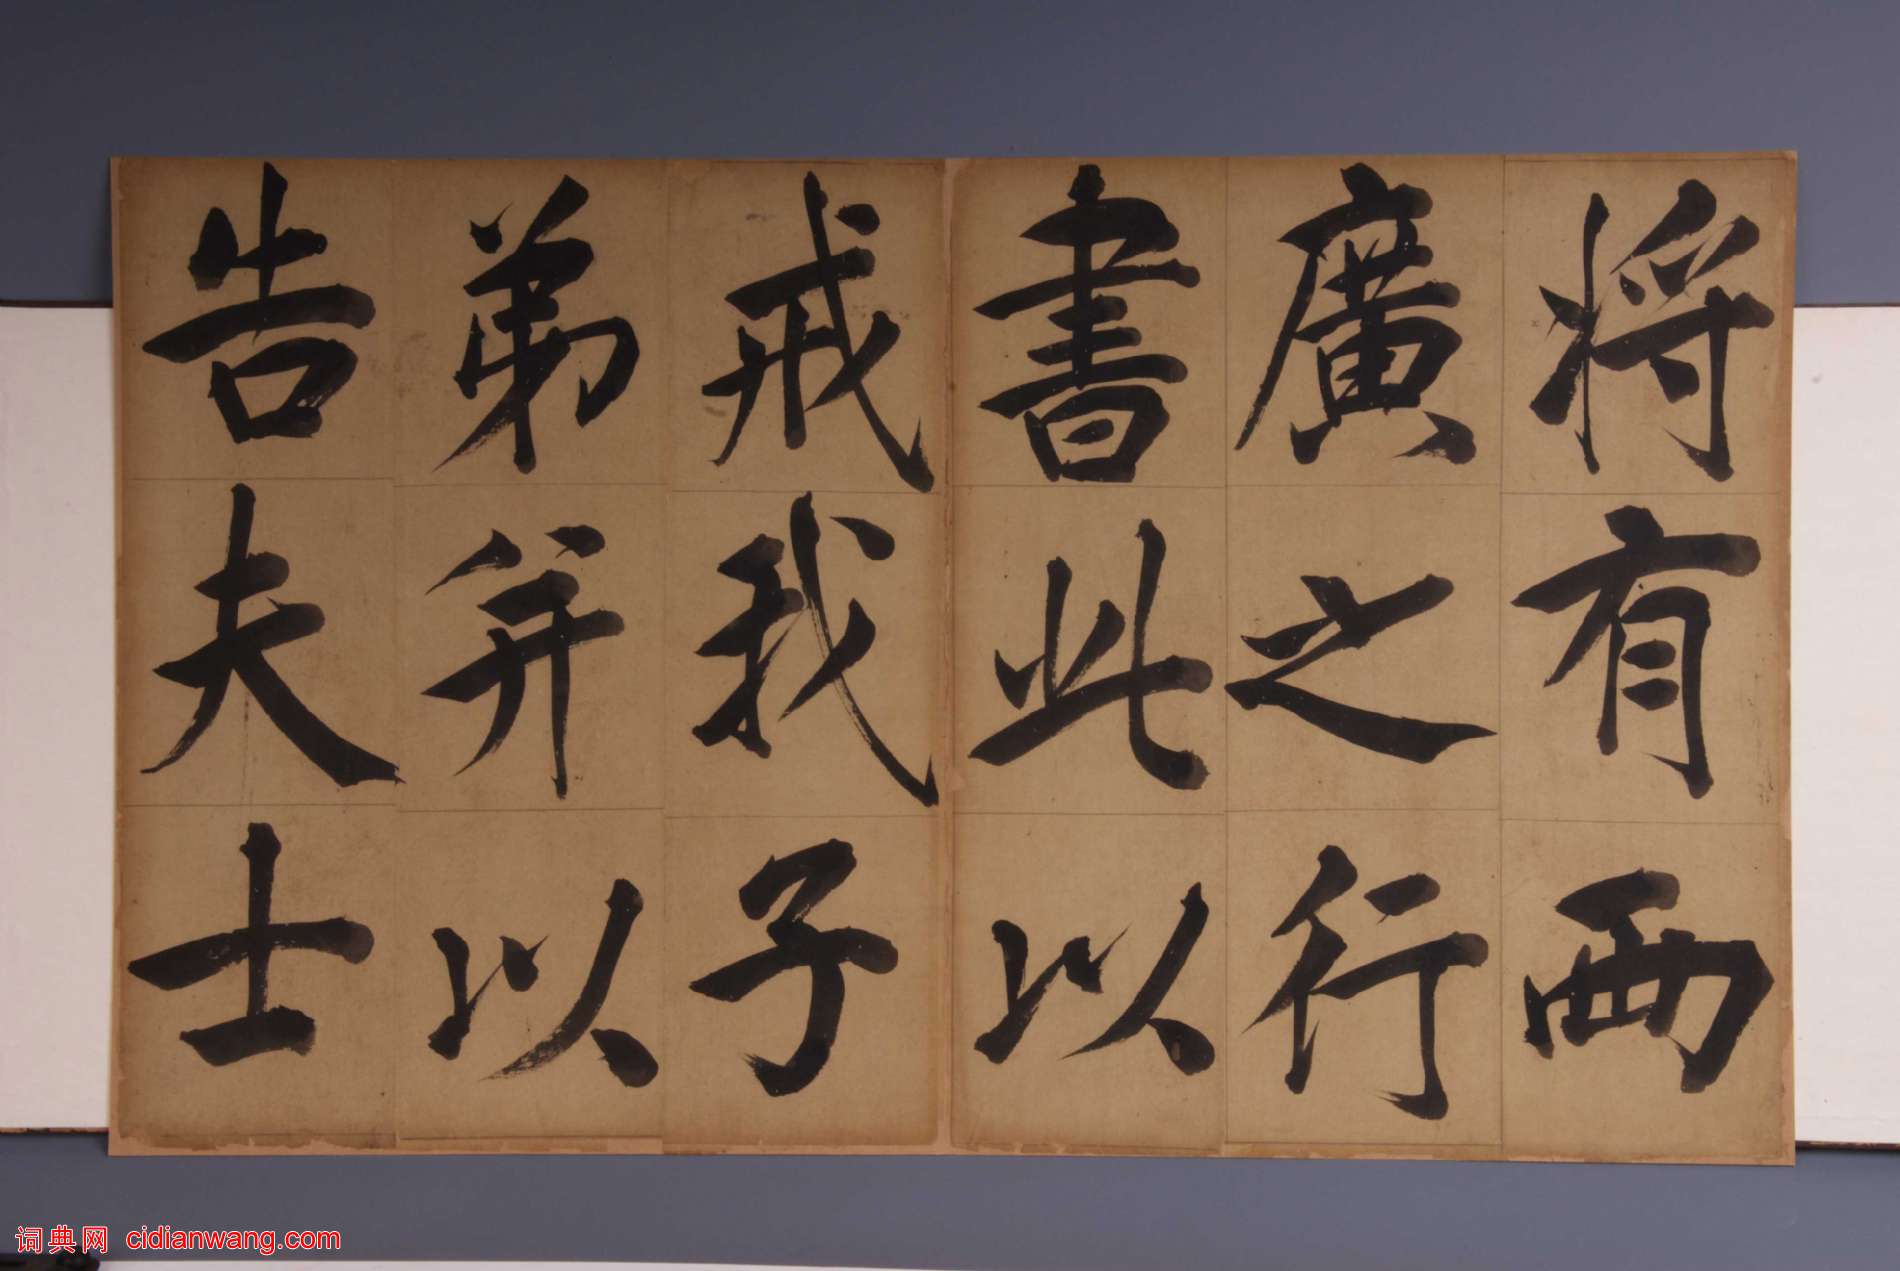 将有西
廣之行
書此以
戒我子
弟并以
告夫士
词典网 cidianwang.com